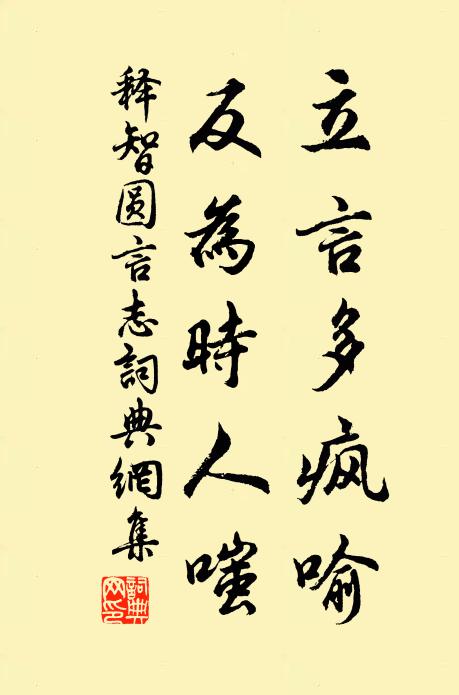 立言多疯喻
反為時人嗤
释智圆言志詞典網集
詞典网印